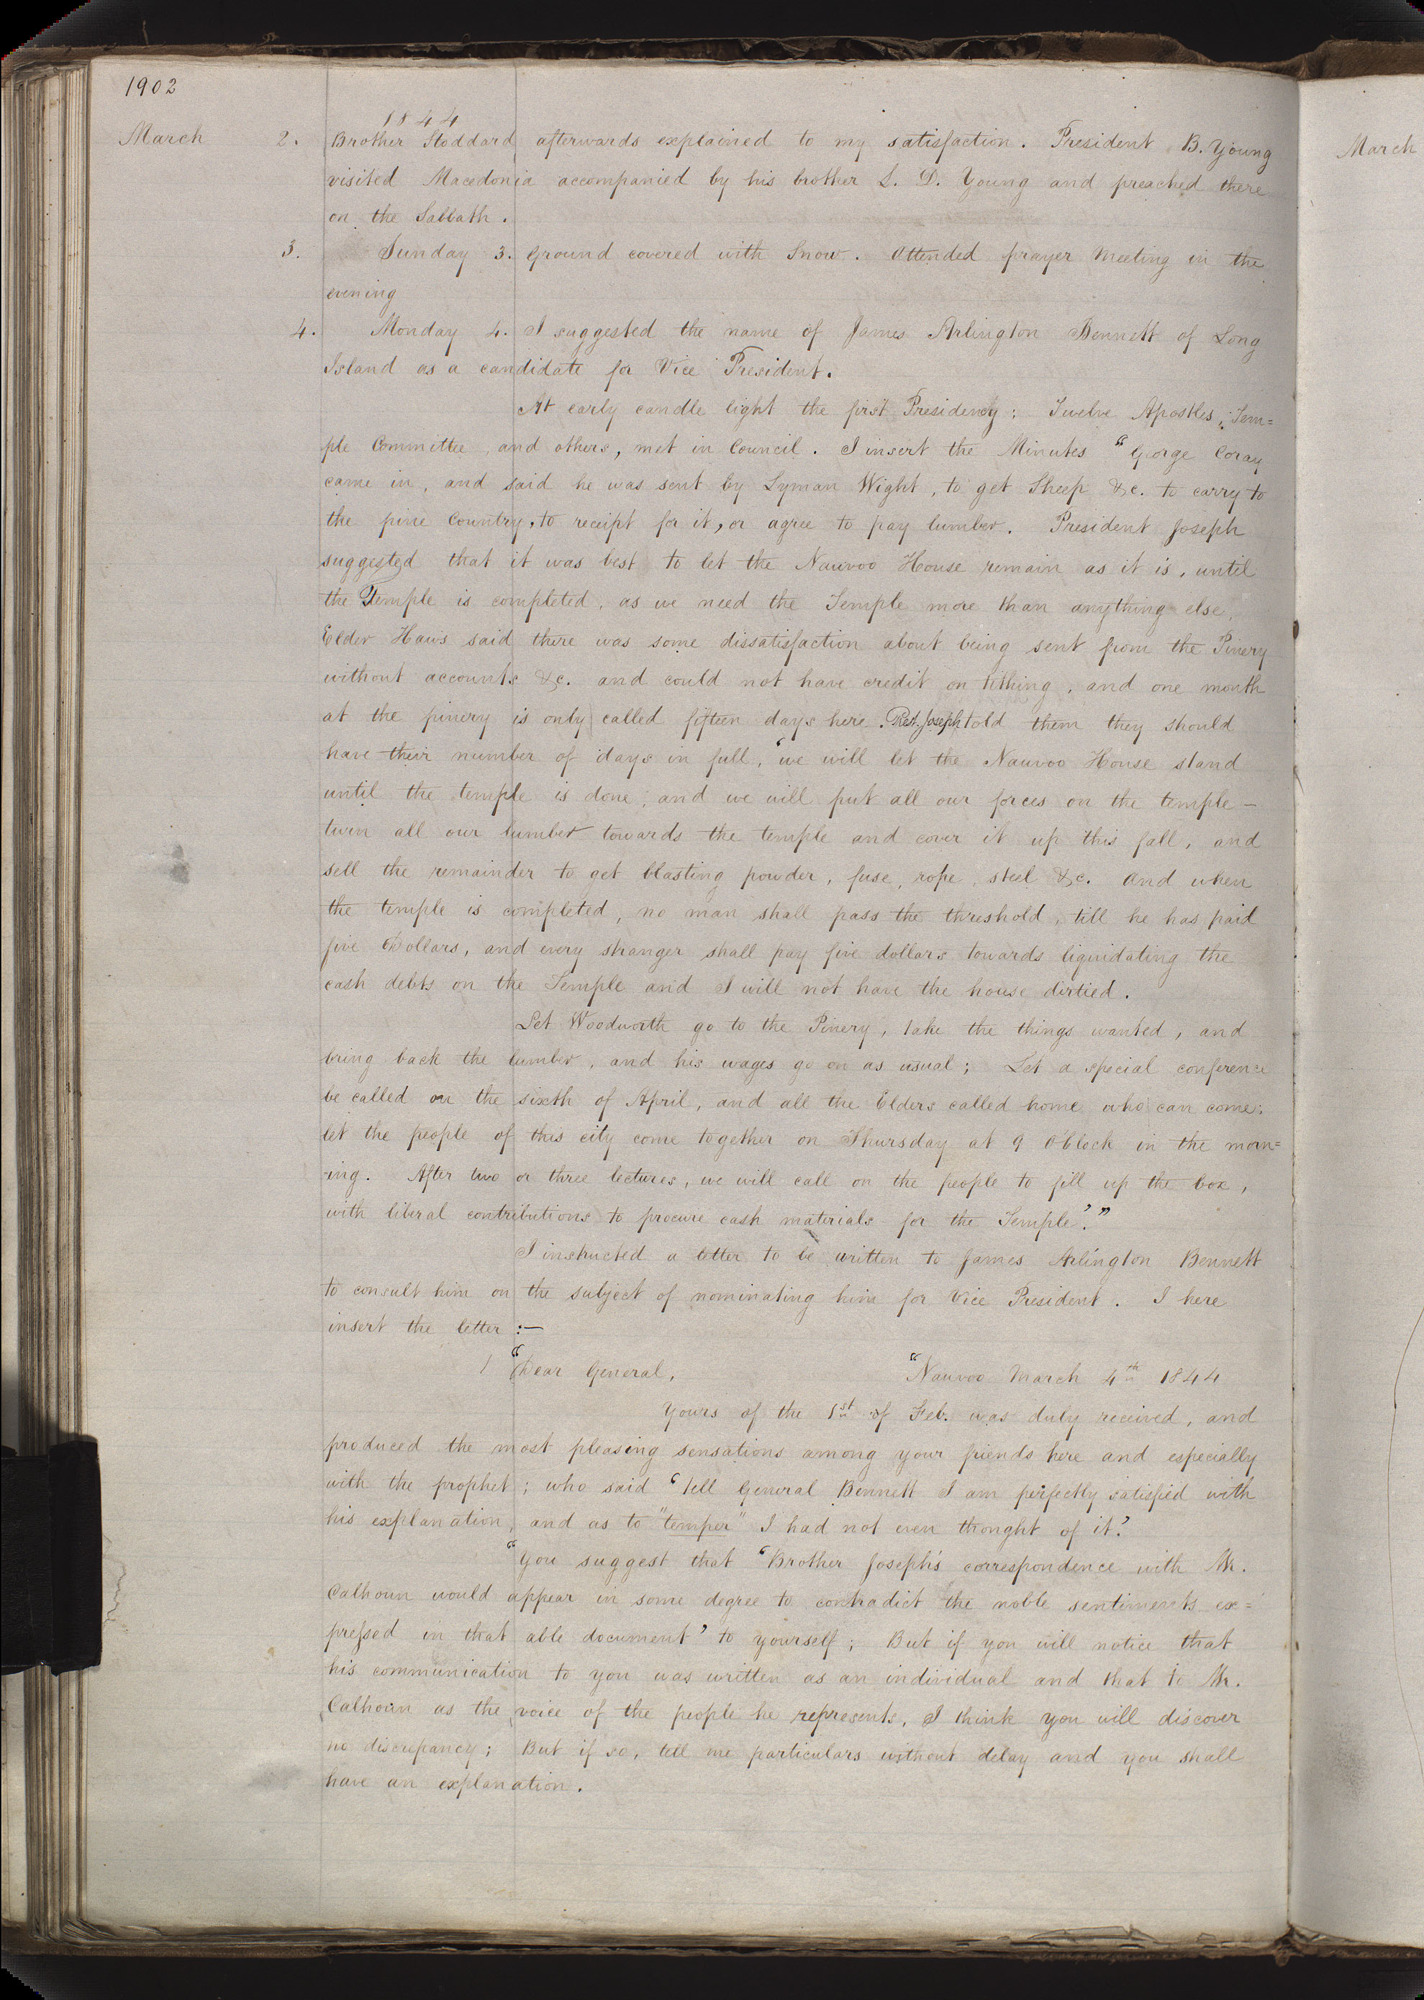 1902
1844
March 2. Brother Stoddard afterwards explained to my satisfaction. President B. Young
visited Macedonia accompanied by his brother L. D. Young and preached there
on the Sabbath.
3. Sunday 3. Ground covered with Snow. Attended prayer Meeting in the
evening
4. Monday 4. I suggested the name of James Arlington Bennett of Long
Island as a candidate for Vice President.
At early candle light the first Presidency; Twelve Apostles; Tem=
ple Committee, and others, met in Council. I insert the Minutes "George Coray
came in, and said he was sent by Lyman Wight, to get Sheep &c. to carry to
the pine Country, to receipt for it, or agree to pay lumber. President Joseph
suggested that it was best to let the Nauvoo House remain as it is, until
the Temple is completed, as we need the Temple more than anything else.
Elder Haws said there was some dissatisfaction about being sent from the Pinery
without accounts &c. and could not have credit on tithing, and one month
at the pinery is only called fifteen days here. Prest. Joseph told them they should
have their number of days in full, 'we will let the Nauvoo House stand
until the temple is done, and we will put all our forces on the temple—
turn all our lumber towards the temple and cover it up this fall, and
sell the remainder to get blasting powder, fuse, rope, steel &c. And when
the temple is completed, no man shall pass the threshold, till he has paid
five Dollars, and every stranger shall pay five dollars towards liquidating the
cash debts on the Temple and I will not have the house dirtied.
Let Woodworth go to the Pinery, take the things wanted, and
bring back the lumber, and his wages go on as usual; Let a special conference
be called on the sixth of April, and all the Elders called home who can come;
let the people of this city come together on Thursday at 9 O'clock in the morn=
ing. After two or three lectures, we will call on the people to fill up the box,
with liberal contributions to procure cash materials for the Temple'."
I instructed a letter to be written to James Arlington Bennett
to consult him on the subject of nominating him for Vice President. I here
insert the letter:—
"Dear General, "Nauvoo March 4th 1844
Yours of the 1st of Feb. was duly received, and
produced the most pleasing sensations among your friends here and especially
with the prophet; who said 'tell General Bennett I am perfectly satisfied with
his explanation, and as to "temper" I had not even thought of it.'
"You suggest that 'Brother Joseph's correspondence with Mr.
Calhoun would appear in some degree to contradict the noble sentiments ex=
pressed in that able document' to yourself; But if you will notice that
his communication to you was written as an individual and that to Mr.
Calhoun as the voice of the people he represents, I think you will discover
no discrepancy; But if so, tell me particulars without delay and you shall
have an explanation.
March